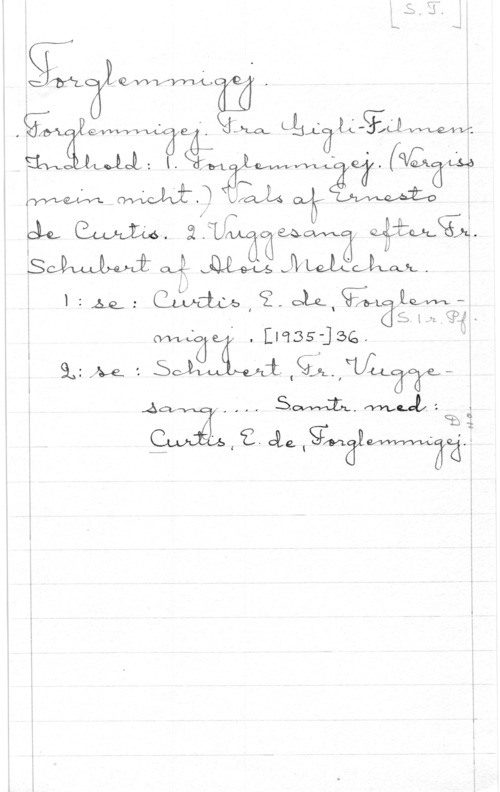 [S. T.]
Forglemmigej.
Forglemmigej. Fra Gigli-Filmen.
Indhold: 1. Forglemmigej. (Vergiss
mein nicht.) Vals af Ernesto
de Curtis. 2. Vuggesang efter Fr.
Schubert af Alois Melichar.
1: se: Curtis, E. de, Forglem-
migej. [1935-]36. S. 1. r. Pf.
2: se: Schubert, Fr., Vugge-
sang.... Samtr. med:
Curtis, E. de, Forglemmigej.